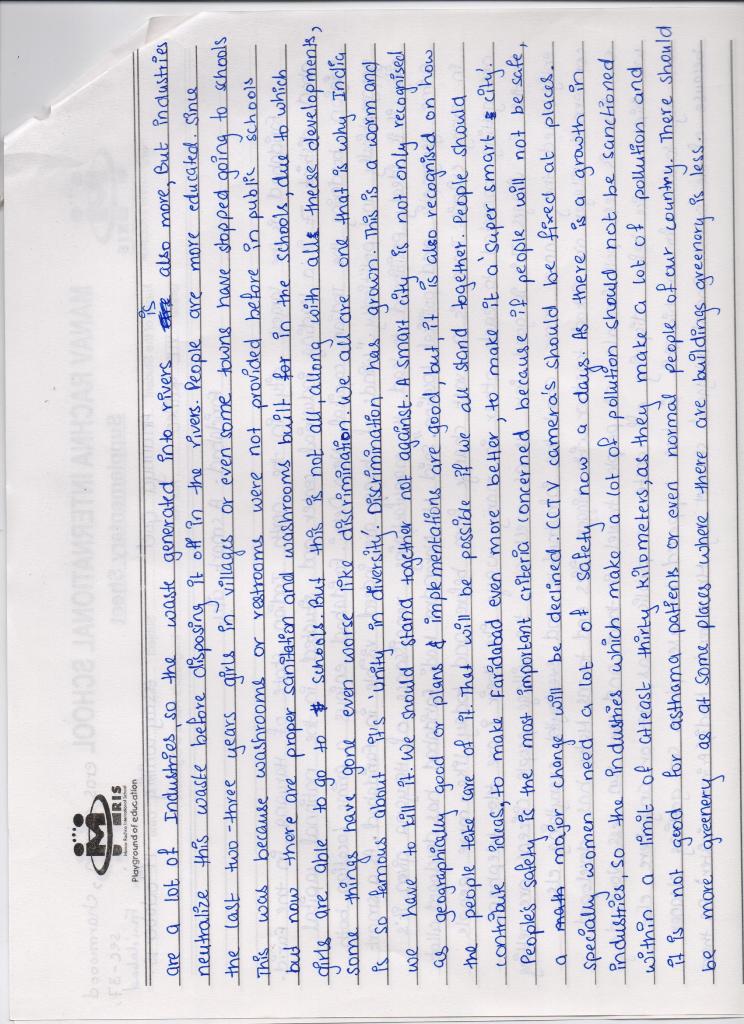 MRIS
Manav Rachna International School
Playground of education
are a lot of Industries so the waste generated into rivers is also more, But industries
neutralize this waste before disposing it off in the rivers. People are more educated. Since
the last two-three years girls in villages or even some towns have stopped going to schools
This was because washrooms or restrooms were not provided before in public schools
but now there are proper sanitation and washrooms built for in the schools, due to which
girls are able to go to schools. But this is not all allong with all theese developments,
some things have gone even worse like discrimination. We all are one that is why India
is so famous about it's 'unity in diversity'. Discrimination has grown. This is a worm and
we have to kill it. We should stand together not against. A smart city is not only recognised
as geographially good or plans & implementations are good, but, it is also recognised on how
the people take care of it. That will be possible if we all stand together. People should
contribute ideas, to make Faridabad even more better, to make it a 'super smart city'.
People's safety is the most important criteria concerned because if people will not be safe,
a major change will be declined. CCTV camera's should be fixed at places.
specially women need a lot of safety now a days. As there is a growth in
industries, so the industries which make a lot of pollution should not be sanctioned
within a limit of atleast thirty kilometers, as they make a lot of pollution and
it is not good for asthama patients or even normal people of our country. There should
be more greenery as at some places where there are buildings greenery is less.